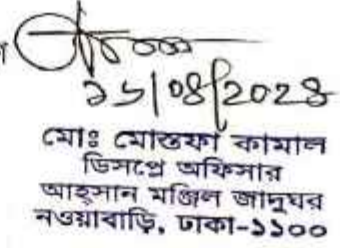 ১৬|০৪|২০২৪
মোঃ মোস্তফা কামাল
ডিসপ্লে অফিসার
আহ্‌সান মঞ্জিল জাদুঘর
নওয়াবাড়ি, ঢাকা-১১০০